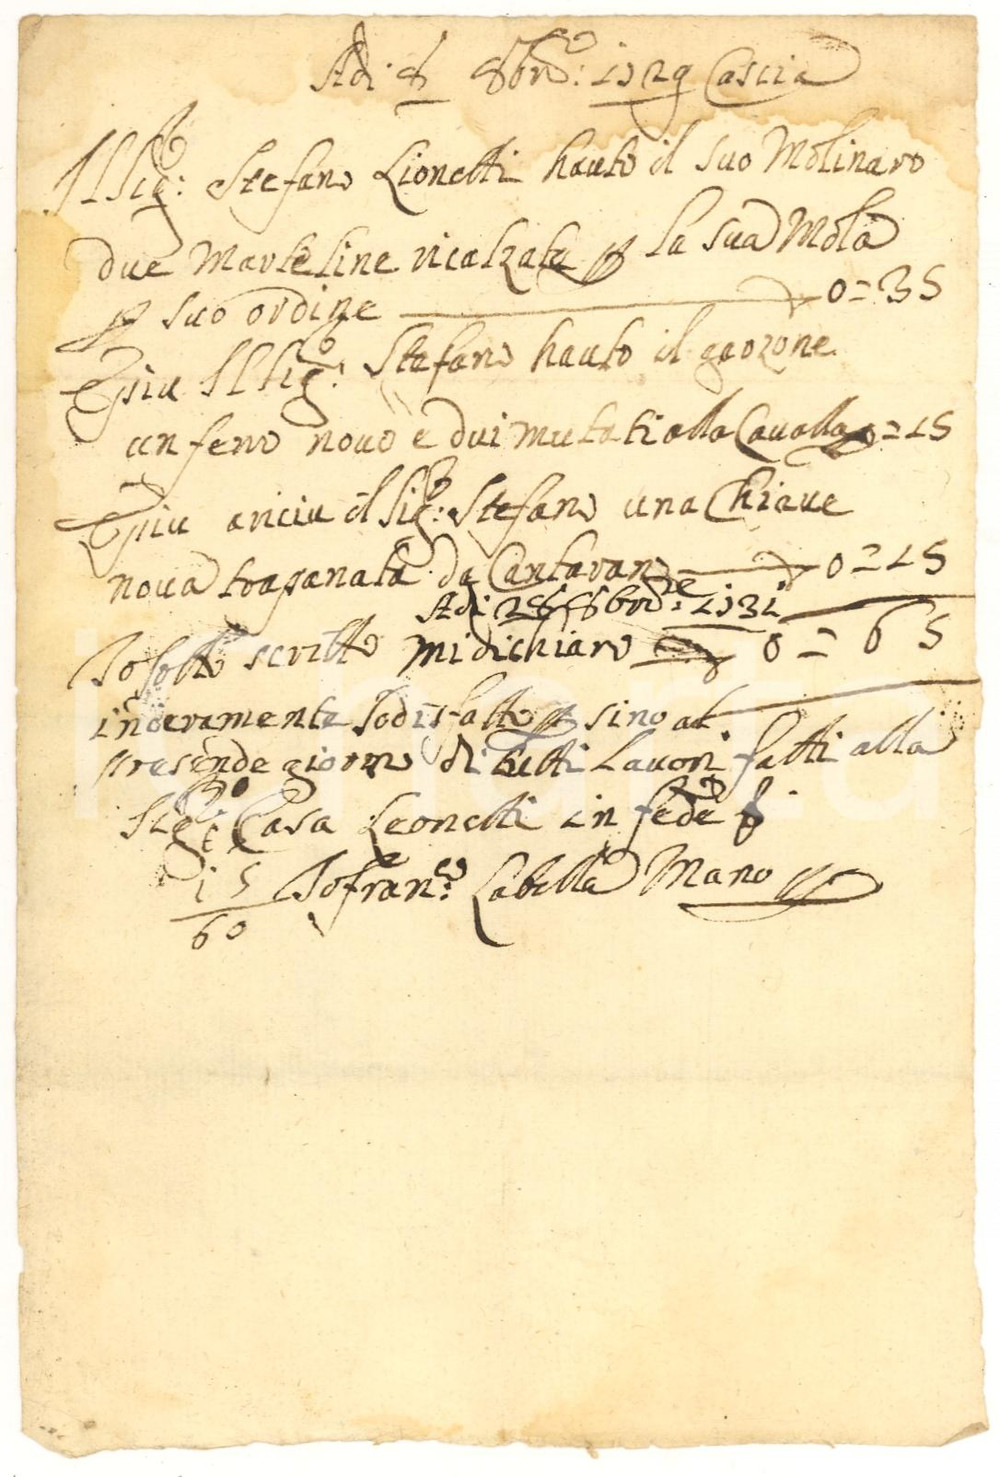 Adi 8 8bre: 1729 Cascia
Il Sig.r: Stefano Lionetti hauto il suo Molinaro
due Marteline ricalzate p la sua Mola
p suo ordine 0=35
E piu Il Sig.r: Stefano hauto il gaozone
un fero novo e dui mutati alla Cavalla 0=15
E piu anciu il Sig.r: Stefano una Chiave
nova trapanata da Cantaran 0=15
Adi 28 8bre: 1731
Io sotto scritto mi dichiaro 0=65
interamente sodisfatto p sino al
presende giorno di tutti Lavori fatti alla
Sig.r: Casa Leonetti in fede
15 Io Fran.co: Labella Mano pp
60